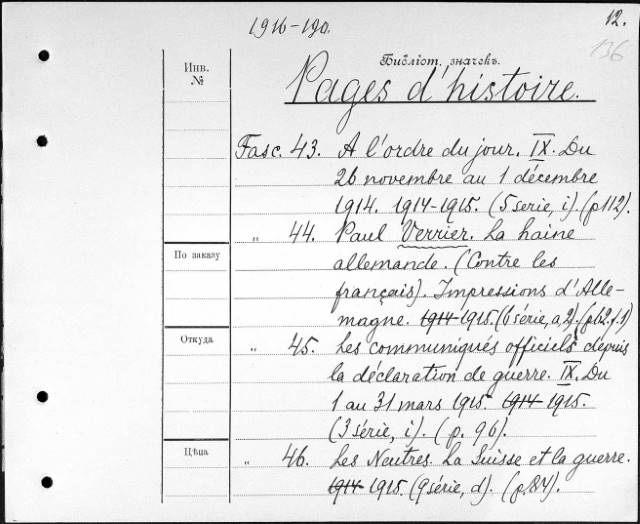 1916-190.
12.
136
Инв.
№
Библіот. значекъ.
Pages d'histoire.
Fasc. 43. A l'ordre du jour. IX. Du
26 novembre au 1 décembre
1914. 1914-1915. (5 serie, i). (p 112).
" 44. Paul Verrier. La haine
По заказу
allemande. (Contre les
français). Impressions d'Alle-
magne. 1914 1915. (6 série, a, 2). (p. 12. f. 1)
Откуда
" 45. Les communiqués officiels depuis
la déclaration de guerre. IX. Du
1 au 31 mars 1915. 1914 1915.
(3 série, i). (p. 96).
Цѣна
" 46. Les Neutres. La Suisse et la guerre.
1914 1915. (9 série, d). (p. 84).